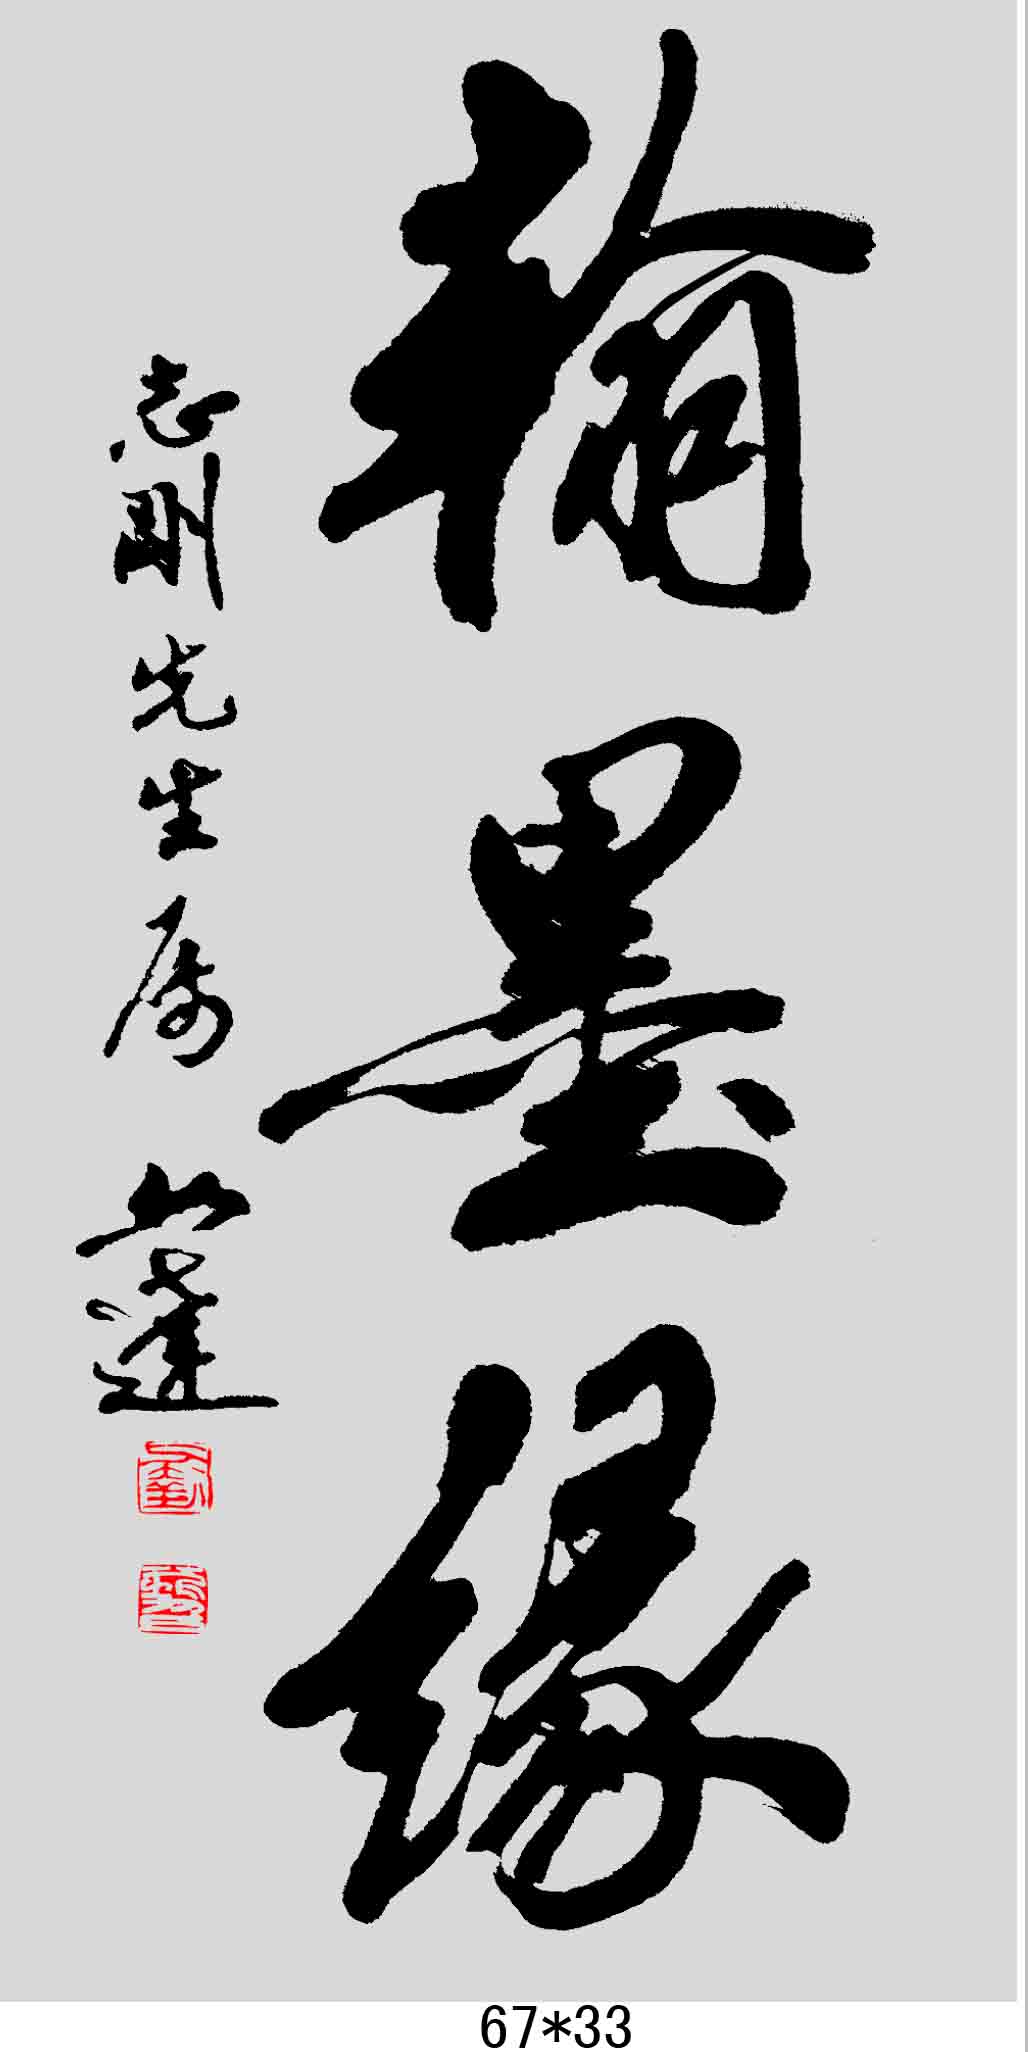 翰墨缘
志刚先生属
艺达
67*33